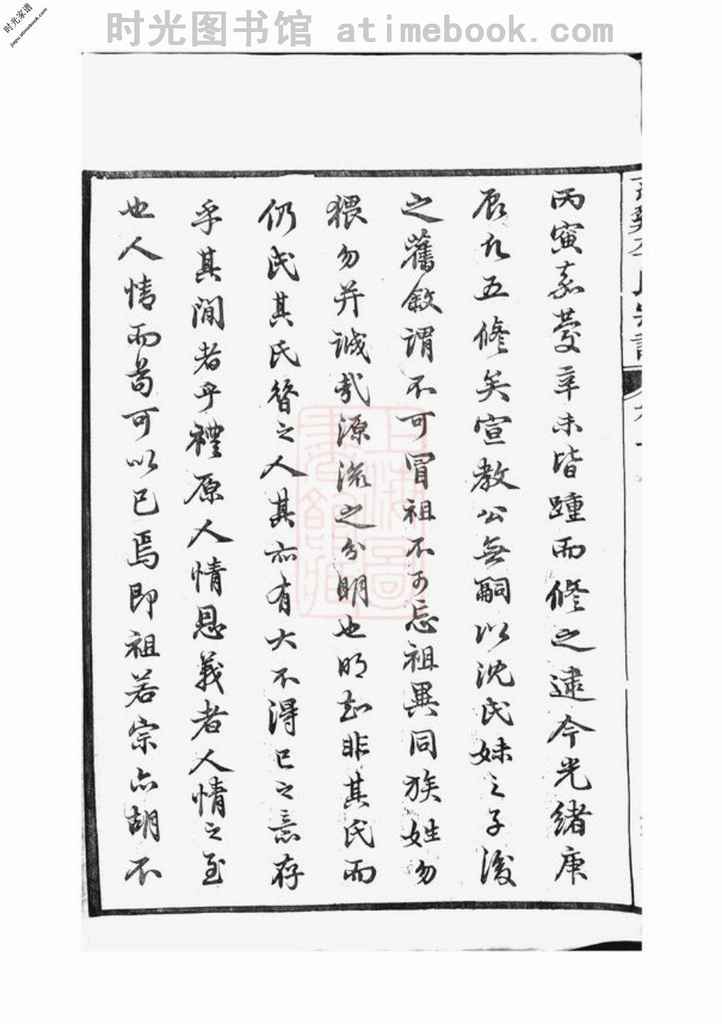 时光图书馆 atimebook.com
时光家谱
jiapu.atimebook.com
丙寅嘉慶辛未皆踵而修之逮今光緒庚
辰凡五修矣宣教公無嗣以沈氏妹之子後
之舊敘謂不可冒祖不可忘祖異同族姓勿
猥勿并誠哉源流之分明也明知非其氏而
仍氏其氏簪之人其亦有大不得已之意存
乎其間者乎禮原人情恩義者人情之至
也人情而苟可以已焉即祖若宗亦胡不